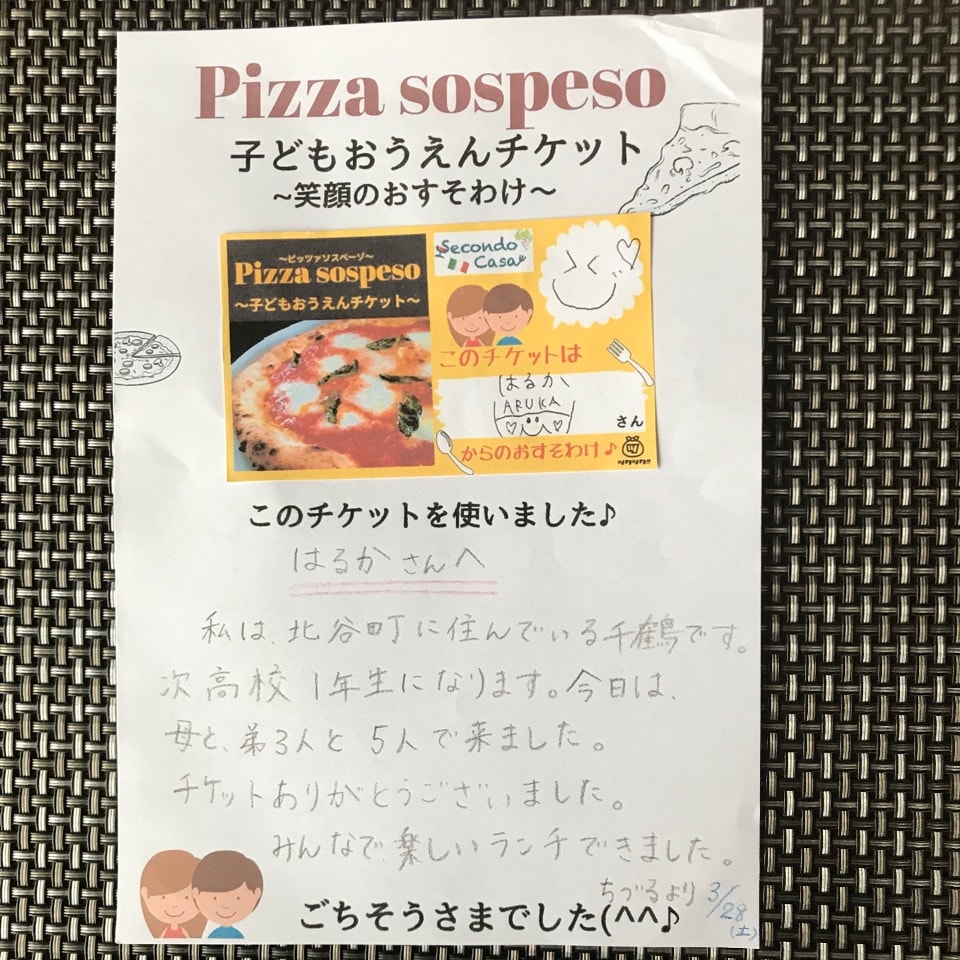 Pizza sospeso
子どもおうえんチケット
~笑顔のおすそわけ~
～ピッツァソスペーゾ～
Pizza sospeso
～子どもおうえんチケット～
Secondo
Casa
このチケットは
はるか
ARUKA
さん
からのおすそわけ♪
このチケットを使いました♪
はるかさんへ
私は、北谷町に住んでいる千鶴です。
次高校1年生になります。今日は、
母と、弟3人と5人で来ました。
チケットありがとうございました。
みんなで、楽しいランチできました。
ちづるより 3/28
(土)
ごちそうさまでした(^^♪